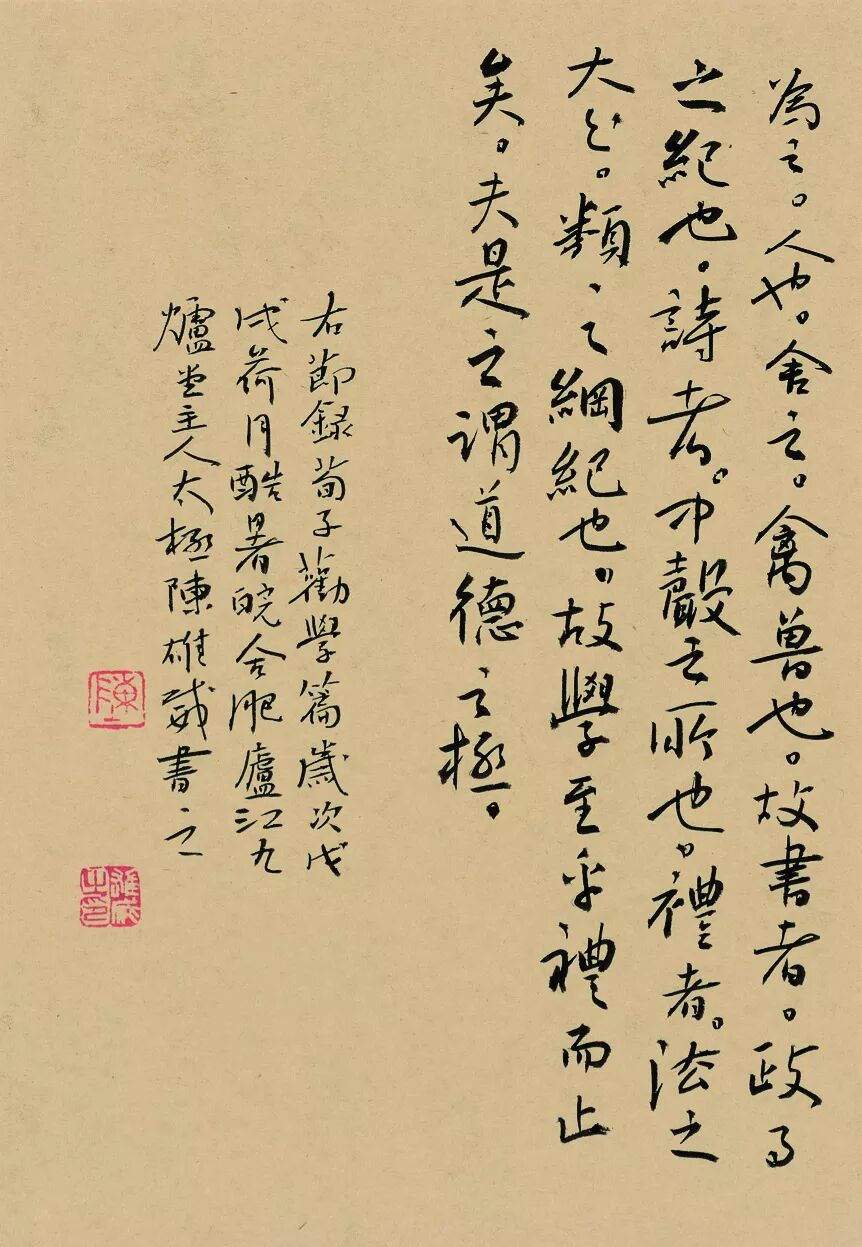 為之。人也。舍之。禽獸也。故書者。政事
之紀也。詩者。中聲之所也。禮者。法之
大分。類之綱紀也。故學至乎禮而止
矣。夫是之謂道德之極。
右節録荀子勸學篇歲次戊
戌荷月酷暑皖合肥廬江九
爐堂主人太極陳雄威書之
陳
雄威之印